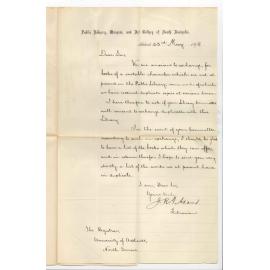 Public Library, Museum, and Art Gallery of South Australia,
Adelaide 23rd May 19
Dear Sir,
We are anxious to exchange, for
books of a suitable character which are not at
present in the Public Library, some works of which
we have retained duplicate copies at various times.
I have therefore to ask if your Library Committee
will concur to exchange with this
Library.
For the event of your Committee
consenting to such an exchange, I should be glad
to have a list of the books which they can offer,
and in return therefor I hope to send you very
shortly a list of the works we at present have
in duplicate.
I am, Dear Sir,
Yours truly,
Librarian
The Registrar
University of Adelaide
North Terrace